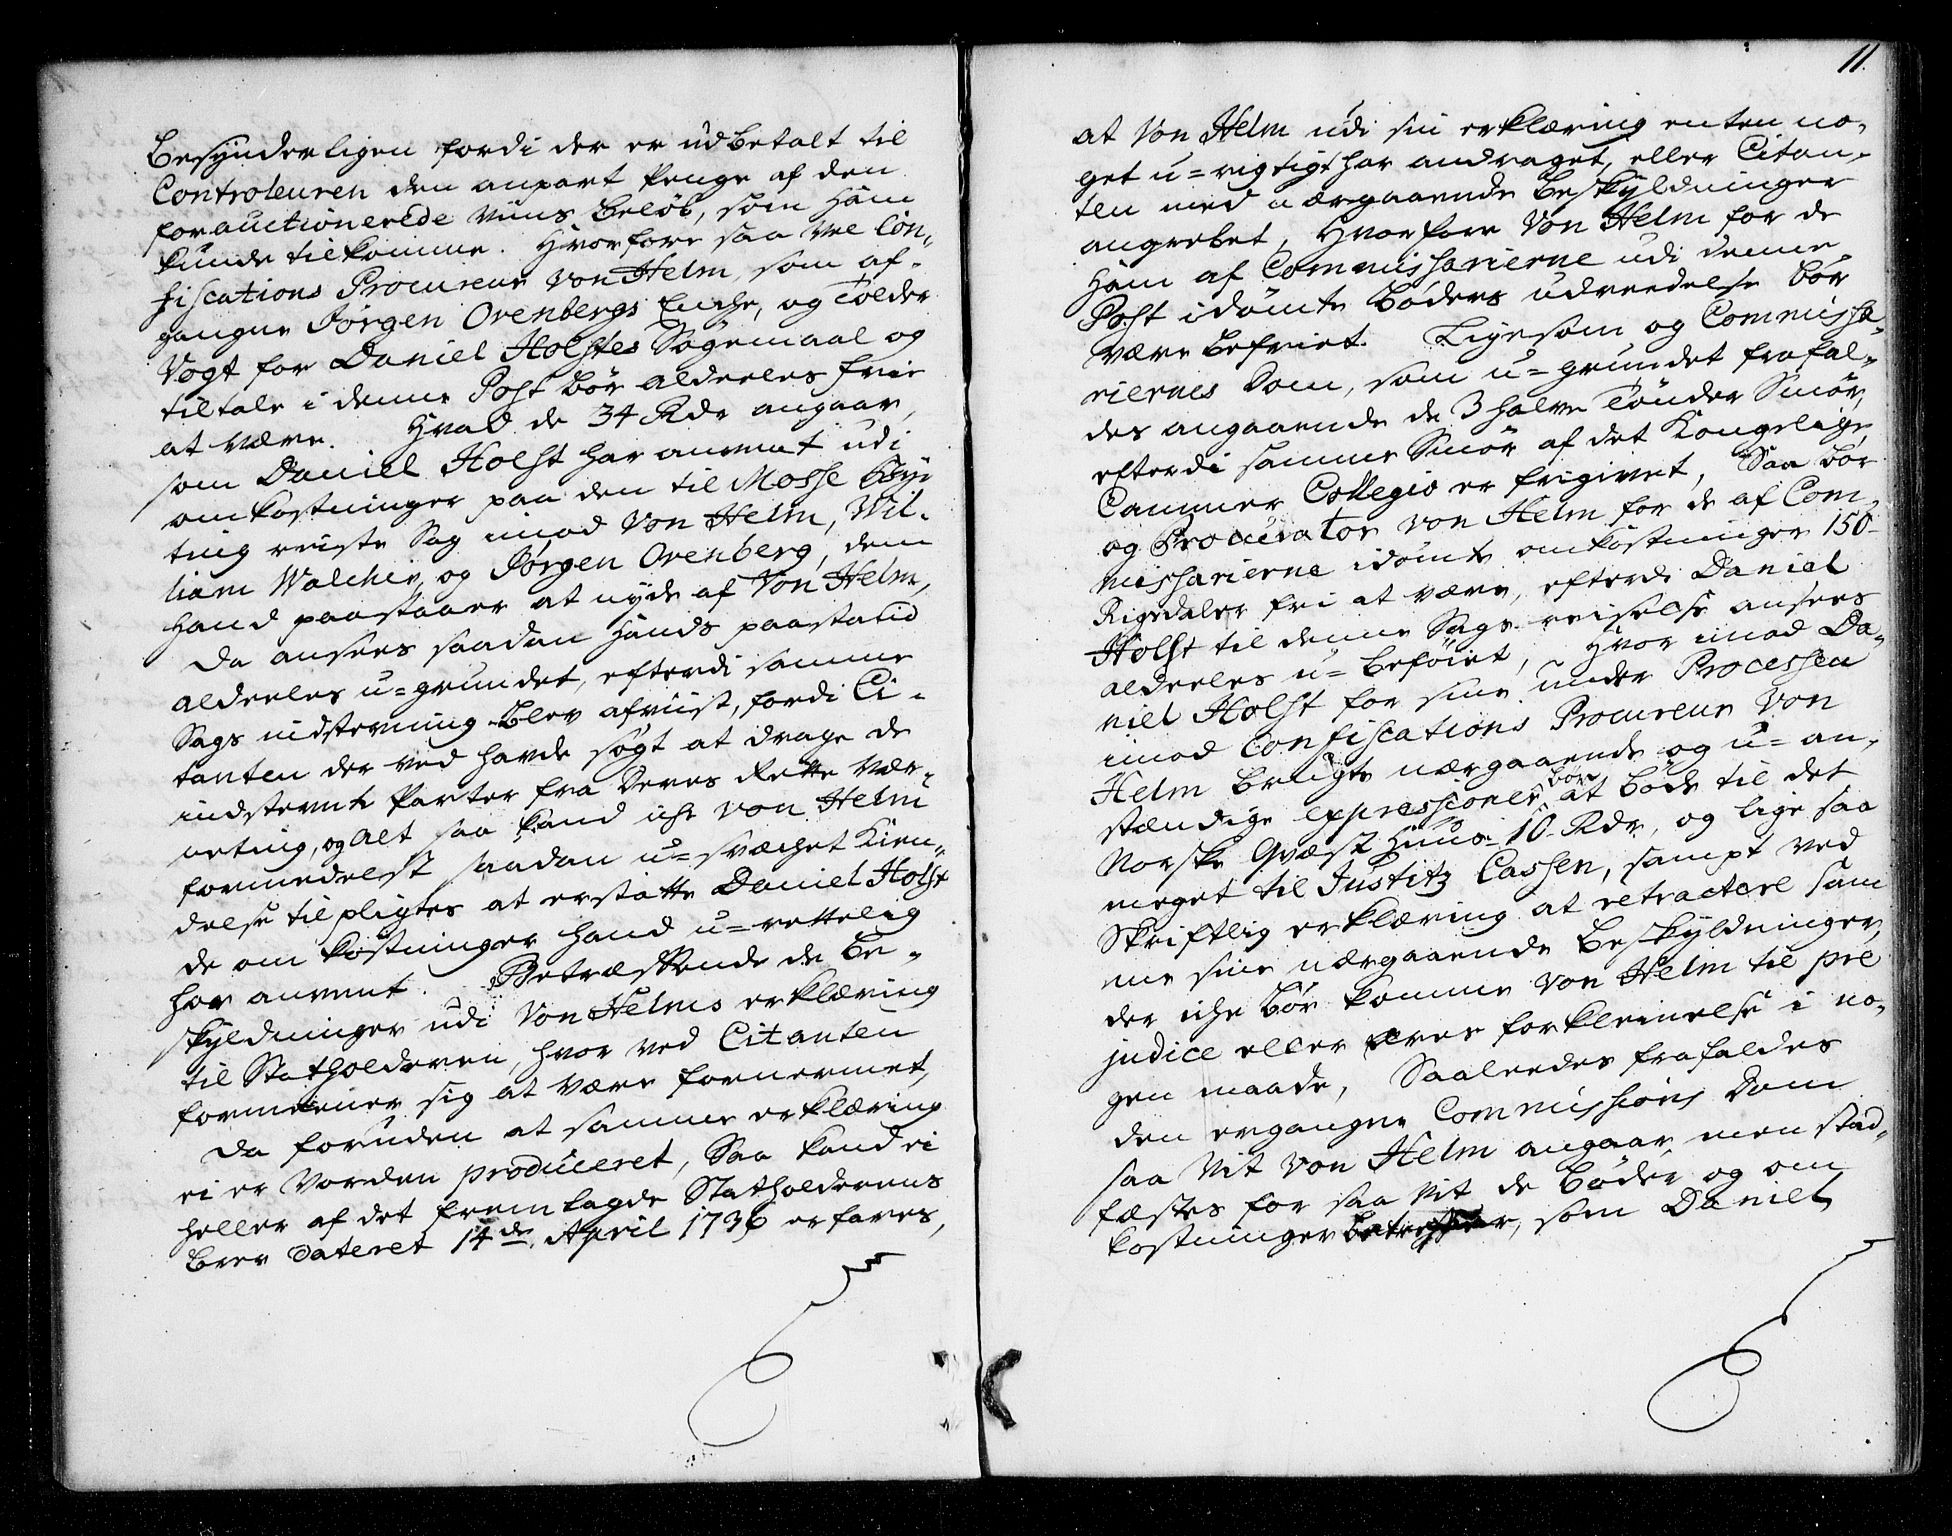 besynderligen fordi der er udbetalt til
Controleuren den anpart penge af den
forauctionerede viins beløb, som ham
kunde tilkomme. Hvorfore saa vel Con-
fiscations Procureur Von Helm, som af-
gangne Jørgen Orenbergs Enche, og Tolder
Vogt for Daniel Holstes Søgemaal og
tiltale i denne Post bør aldeeles frie
at være. Hvad de 34 Rdr angaar,
som Daniel Holst har anvent udi
omkostninger paa den til Mosse Bye
ting reiste Sag imod Von Helm, Wil-
liam Walcher, og Jørgen Orenberg, dem
hand paastaaer at nyde af Von Helm,
Da ansees saadan hands paastand
aldeeles u=grundet, efterdi samme
Sags indstevning blev afviist, fordi Ci-
tanten der ved havde søgt at drage de
indstevnte Parter fra deres Rette Vær-
neting, og alt saa kand iche von Helm
formedelst saadan u=svæchet Kien-
delse tilpligtes at erstatte Daniel Holst
de omkostninger hand u=rettelig
har anvent. Betræffende de be-
skyldninger udi Von Helms erklæring
til Statholderen, hvor ved Citanten
formeener sig at være fornermet,
Da foruden at samme erklæring
ei er vorden produceret, Saa kand ei
heller af det fremlagde Statholderens
brev dateret 14de April 1736 erfares,
11.
at Von Helm udi sin erklæring enten no-
get u=rigtigt har andraget, eller Citan-
ten med nærgaaende beskyldninger
angrebet, Hvorfore Von Helm for de
ham af Commissarierne udi denne
Post idømte bøders udreedelse bør
være befriet. Ligesom og Commissa-
riernes dom, som u=grundet frafal-
des angaaende de 3 halve Tønder Smør,
efterdi samme Smør af det Kongelige
Cammer Collegio er frigivet, Saa bør
og Procurator von Helm for de af Com-
missarierne idømte omkostninger 150
Rigsdaler fri at være, efterdi Daniel
Holst til denne Sags reiselse ansees
aldeeles u=beføiet, Hvor imod Da-
niel Holst for sine under Processen
imod Confiscations Procureur Von
Helm brugte nærgaaende og u=an-
stændige expressioner bør at bøde til det
Norske Qvæsthuus 10 Rdr, og lige saa
meget til Justitz Cassen, sampt ved
Skriftlig erklæring at retractere sam
me sine nærgaaende beskyldninger,
der iche bør komme von Helm til pre
judice eller æres forkleinelse i no-
gen maade, Saaleedes frafaldes
den ergangne Commissions dom
saa vit von Helm angaar, men stad-
fæstes for saa vit de bøder og om
kostninger betreffer, som Daniel